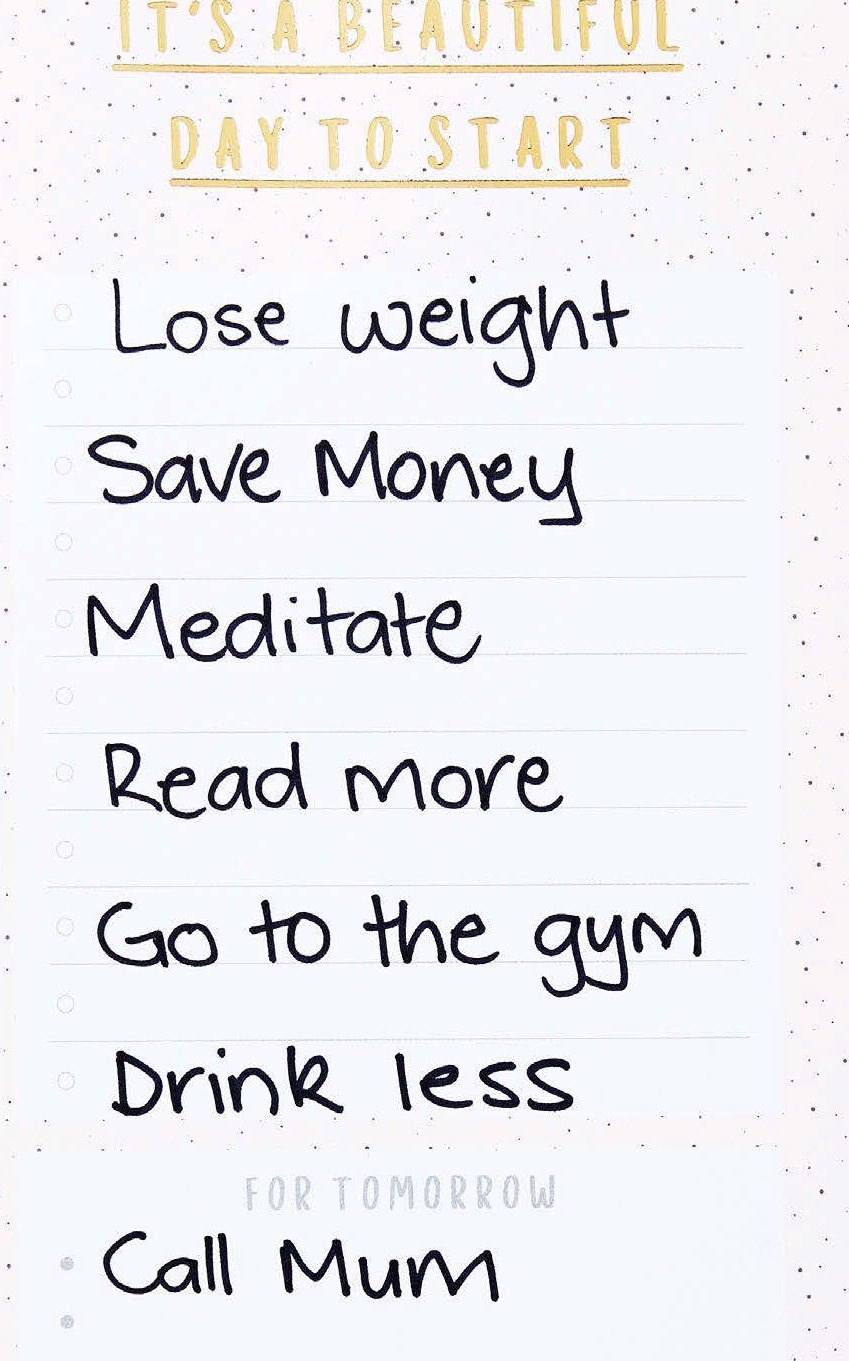 IT'S A BEAUTIFUL
DAY TO START
Lose weight
Save Money
Meditate
Read more
Go to the gym
Drink less
FOR TOMORROW
Call Mum